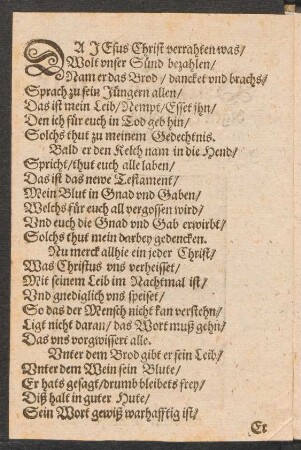 DA JEsus Christ verrahten was/
Wolt vnser Sünd bezahlen/
Nam er das Brod/ dancket vnd brachs/
Sprach zu sein Jüngern allen/
Das ist mein Leib/ Nempt/ Esset jhn/
Den ich für euch in Tod geb hin/
Solchs thut zu meinem Gedechtnis.
Bald er den Kelch nam in die Hend/
Spricht/ thut euch alle laben/
Das ist das newe Testament/
Mein Blut in Gnad vnd Gaben/
Welchs für euch all vergossen wird/
Vnd euch die Gnad vnd Gab erwirbt/
Solchs thut mein darbey gedencken.
Nu merck allhie ein jeder Christ/
Was Christus vns verheisset/
Mit seinem Leib im Nachtmal ist/
Vnd gnediglich vns speiset/
So das der Mensch nicht kan verstehn/
Ligt nicht daran/ das Wort muß gehn/
Das vns vorgwissert alle.
Vnter dem Brod gibt er sein Leib/
Vnter dem Wein sein Blute/
Er hats gesagt/ drumb bleibets frey/
Diß halt in guter Hute/
Sein Wort gewiß warhafftig ist/
Er